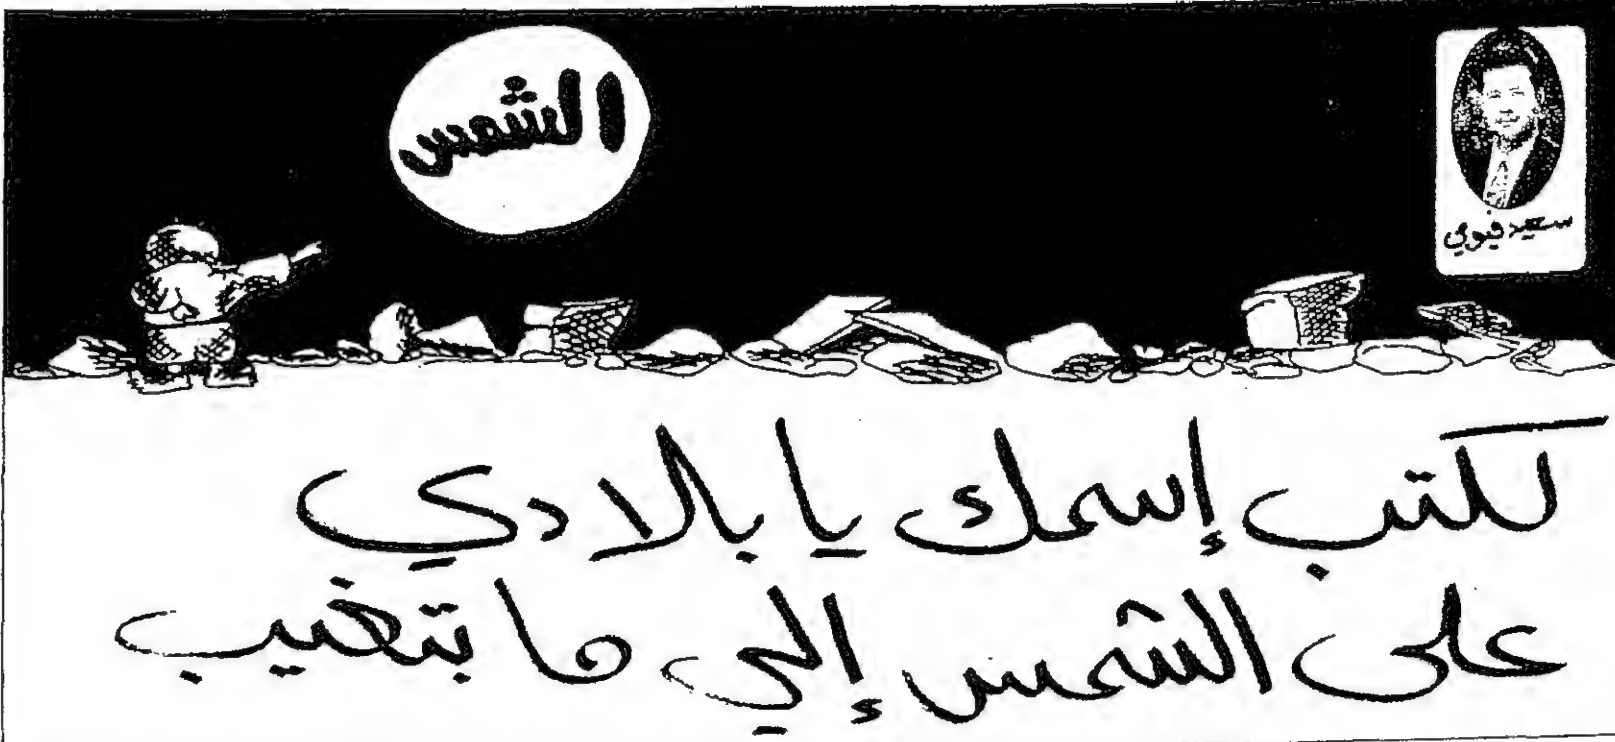 الشمس
لكتب إسمك يا بلادي
على الشمس إلي ما بتغيب